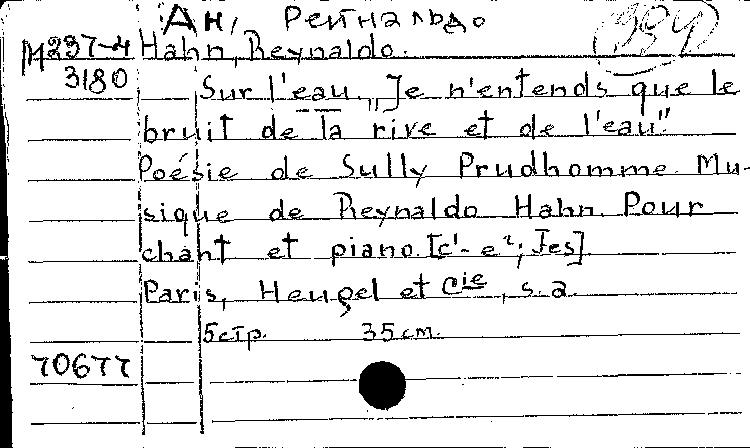 Ан, Рейнальдо
Hahn, Reynaldo.
М 237-4
3180
Sur l'eau „Je n'entends que le
bruit de la rive et de l'eau"
Poésie de Sully Prudhomme. Mu-
sique de Reynaldo Hahn. Pour
chant et piano. [c'-e²; Fes]
Paris, Heugel et Cie, s.a.
5 стр. 35 см.
70677